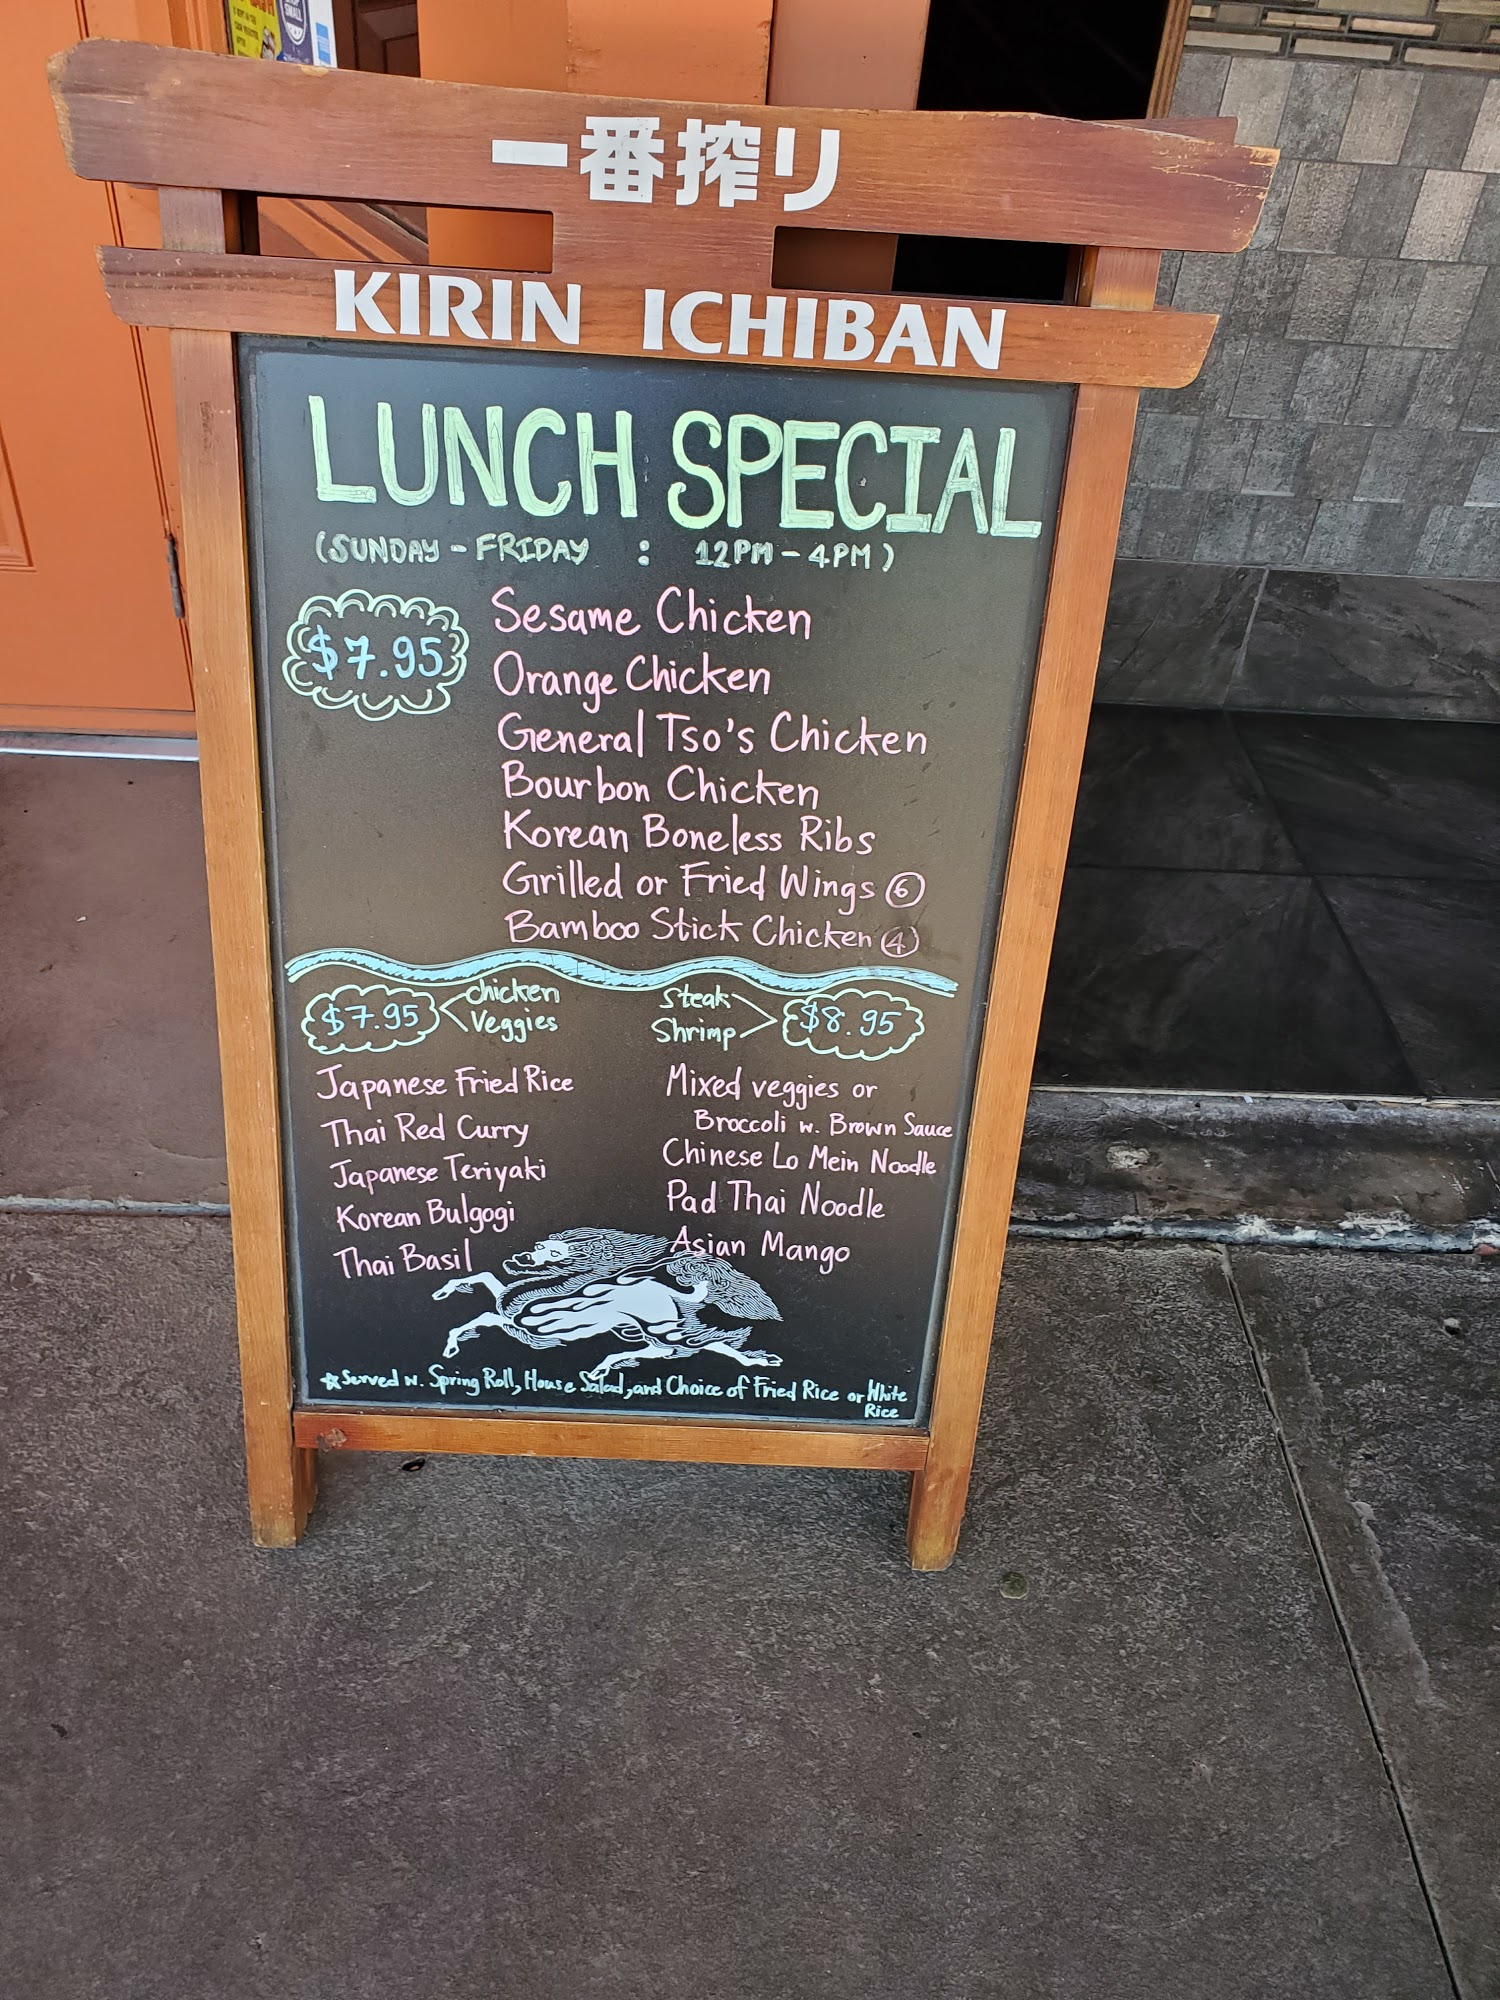 一番搾り
KIRIN ICHIBAN
LUNCH SPECIAL
(SUNDAY - FRIDAY : 12PM - 4PM)
$7.95
Sesame Chicken
Orange Chicken
General Tso's Chicken
Bourbon Chicken
Korean Boneless Ribs
Grilled or Fried Wings ⑥
Bamboo Stick Chicken ④
$7.95 Chicken
Veggies
Steak
Shrimp $8.95
Japanese Fried Rice
Thai Red Curry
Japanese Teriyaki
Korean Bulgogi
Thai Basil
Mixed veggies or
Broccoli w. Brown Sauce
Chinese Lo Mein Noodle
Pad Thai Noodle
Asian Mango
☆ Served w. Spring Roll, House Salad, and Choice of Fried Rice or White
Rice